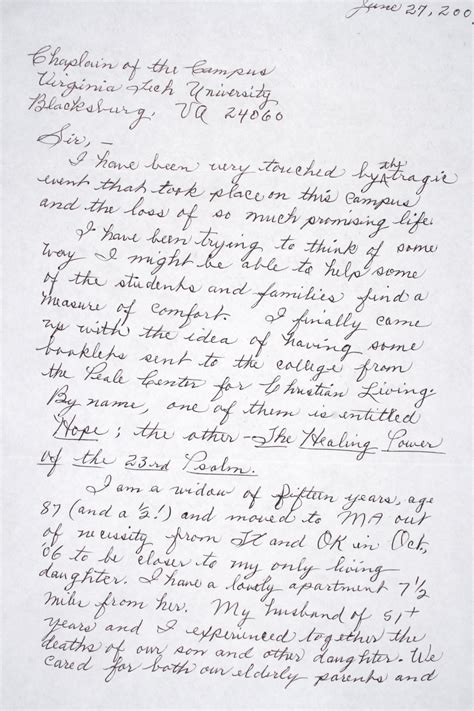 June 27, 200
Chaplain of the Campus
Virginia Tech University
Blacksburg, VA 24060
Sir, -
I have been very touched by the tragic
event that took place on this campus
and the loss of so much promising life.
I have been trying to think of some
way I might be able to help some
of the students and families find a
measure of comfort. I finally came
up with the idea of having some
booklets sent to the college from
the Peale Center for Christian Living.
By name, one of them is entitled
Hope; the other - The Healing Power
of the 23rd Psalm.
I am a widow of fifteen years, age
87 (and a ½!) and moved to MA out
of necessity from TX and OK in Oct,
'06 to be closer to my only living
daughter. I have a lovely apartment 7½
miles from her. My husband of 51+
years and I experienced together the
deaths of our son and other daughter. We
cared for both our elderly parents and